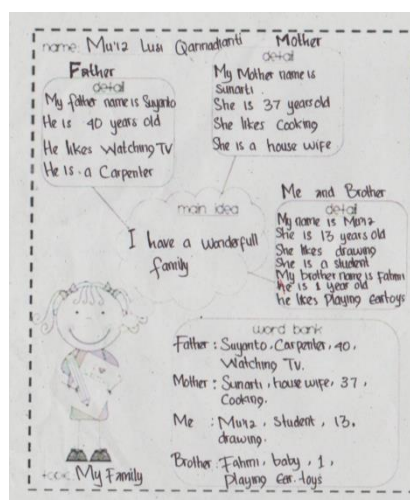 name: Mu'iz Lusi Qannadianti
Father
detail
My father name is Suyanto
He is 40 years old
He likes Watching TV
He is a Carpenter
Mother
detail
My Mother name is
Sunarti.
She is 37 years old
She likes Cooking
She is a house wife
main idea
I have a wonderfull
family
Me and Brother
detail
My name is Muiz
She is 13 years old
She likes drawing
She is a student
My brother name is Fahmi
He is 1 year old
he likes Playing cartoys
word bank
Father : Suyanto, Carpenter, 40,
Watching Tv.
Mother : Sunarti, house wife, 37,
Cooking.
Me : Muiz, Student, 13,
drawing.
Brother : Fahmi, baby, 1,
playing car toys
topic: My Family